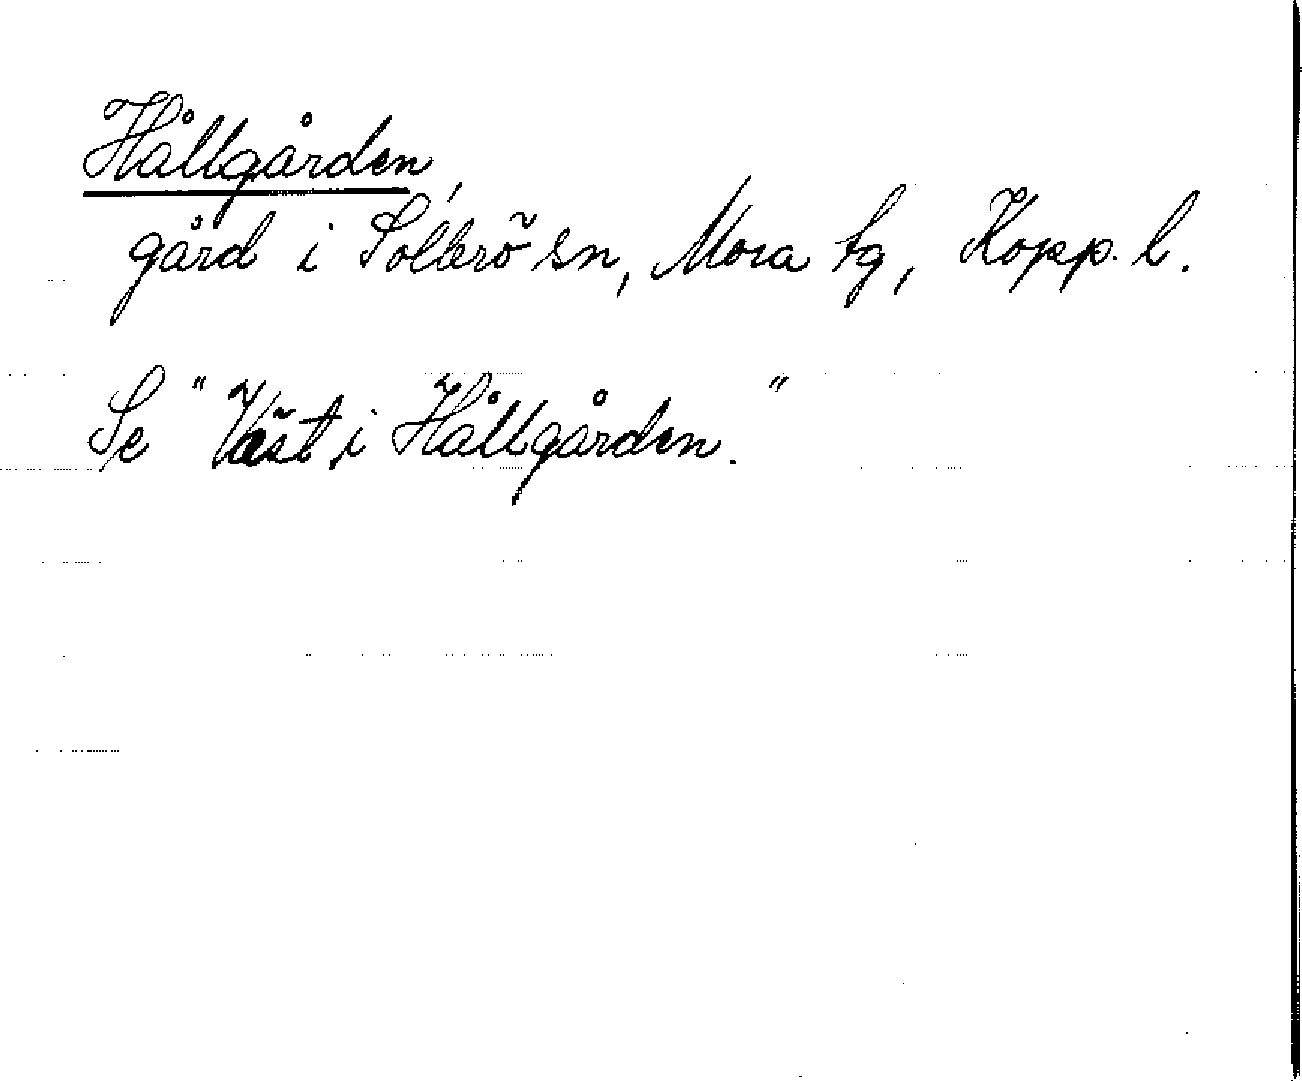 Hållgården,
gård i Sollerö sn, Mora tg, Kopp. l.
Se "Väst i Hållgården."